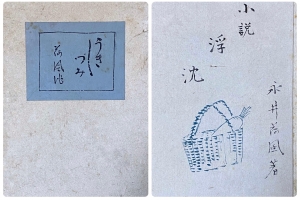 うきしづみ
荷風作
小説
浮沈
永井荷風著